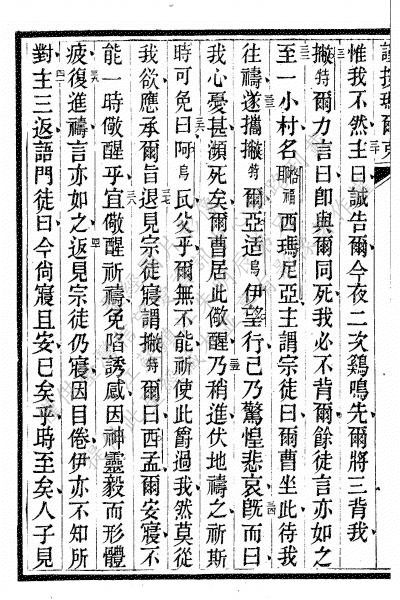 惟我不然主曰誠告爾今夜二次鷄鳴先爾將三背我
撇特爾力言曰卽與爾同死我必不背爾餘徒言亦如之
至一小村名福西瑪尼亞主謂宗徒曰爾曹坐此待我
往禱遂攜撇特爾亞适烏伊望行已乃驚惶悲哀旣而曰
我心憂甚瀕死矣爾曹居此儆醒乃稍進伏地禱之祈斯
時可免曰阿烏父乎爾無不能祈使此爵過我然莫從
我欲應承爾旨退見宗徒寢謂撇特爾曰西孟爾安寢不
能一時儆醒乎宜儆醒祈禱免陷誘惑因神靈毅而形體
疲復進禱言亦如之返見宗徒仍寢因目倦伊亦不知所
對主三返語門徒曰今尙寢且安已矣乎時至矣人子見